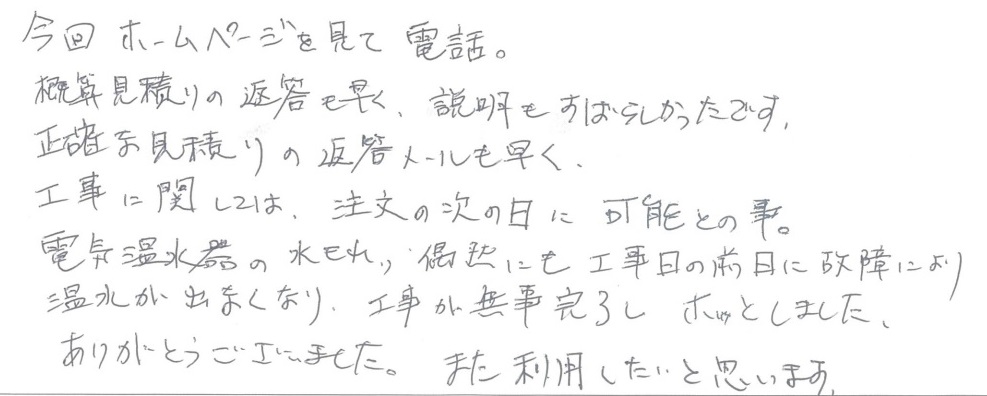 今回 ホームページを見て 電話。
概算見積りの返答も早く、説明もすばらしかったです、
正確な見積りの返答メールも早く、
工事に関しては、注文の次の日に可能との事。
電気温水器の水もれ、偶然にも工事日の前日に故障により
温水が出なくなり、工事が無事完了し ホッとしました、
ありがとうございました。 また利用したいと思います、